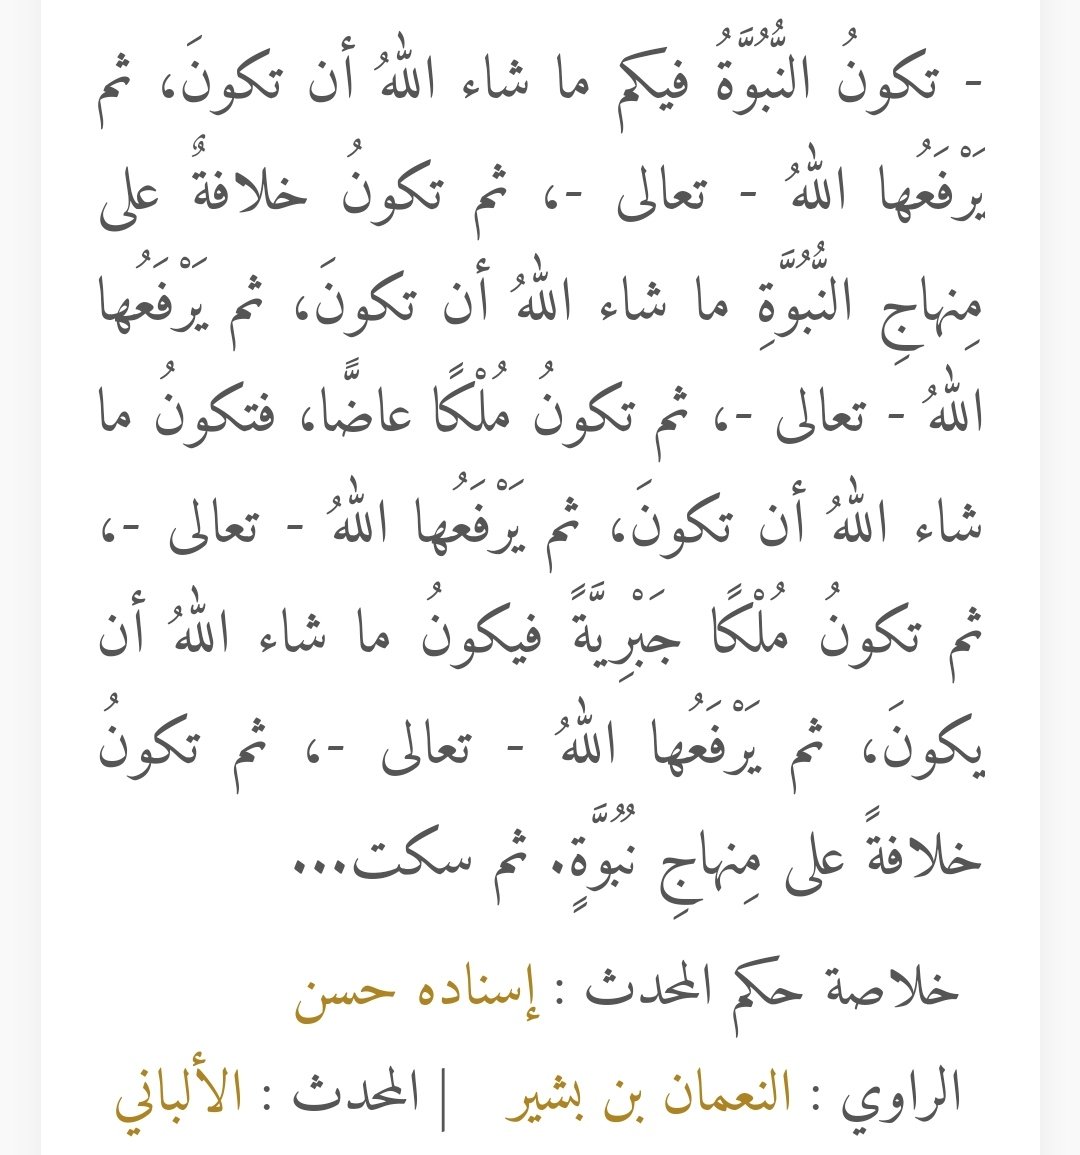 - تكونُ النُّبُوَّةُ فيكم ما شاء اللهُ أن تكونَ، ثم
يَرْفَعُها اللهُ - تعالى -، ثم تكونُ خلافةٌ على
مِنهاجِ النُّبُوَّةِ ما شاء اللهُ أن تكونَ، ثم يَرْفَعُها
اللهُ - تعالى -، ثم تكونُ مُلْكًا عاضًّا، فتكونُ ما
شاء اللهُ أن تكونَ، ثم يَرْفَعُها اللهُ - تعالى -،
ثم تكونُ مُلْكًا جَبْرِيَّةً فيكونُ ما شاء اللهُ أن
يكونَ، ثم يَرْفَعُها اللهُ - تعالى -، ثم تكونُ
خلافةً على مِنهاجِ نُبُوَّةٍ. ثم سكت...
خلاصة حكم المحدث : إسناده حسن
الراوي : النعمان بن بشير | المحدث : الألباني